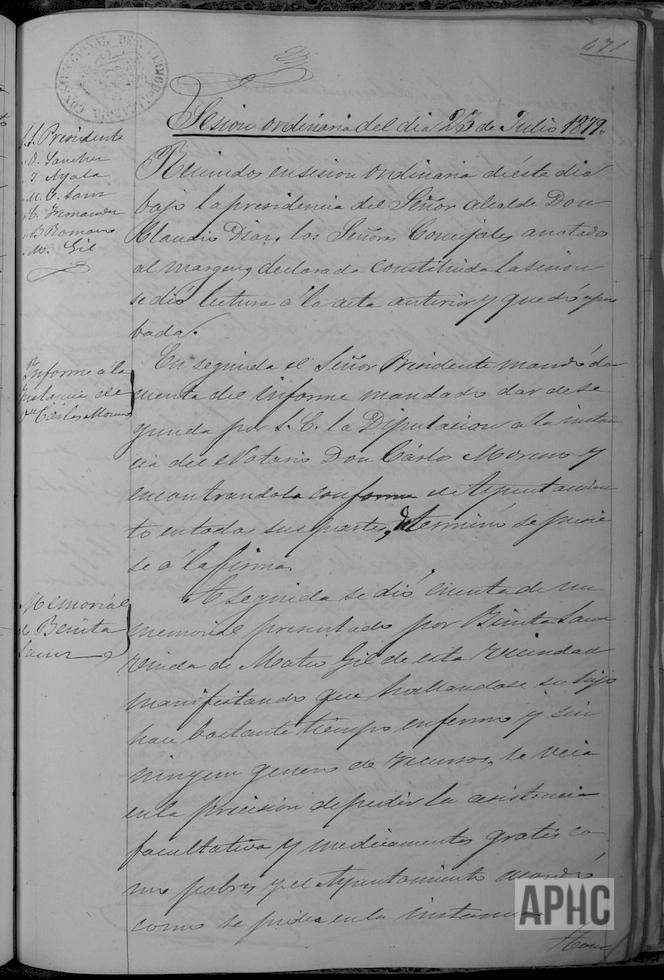 471
Sesion ordinaria del dia 25 de Julio 1879.
S. S. Presidente
Sanchez
Ayala
M. Sanz
Fernandez
Romano
M. Gil
Reunidos en sesion ordinaria de éste dia
bajo la presidencia del Señor alcalde Don
Claudio Diaz, los Señores Concejales anotado
al margen y declarada constituida la sesion
se dió lectura á la acta anterior y quedó apro
bada.
Informe á la
instancia de
Dn Cárlos Moreno
En seguida el Señor Presidente mandó da
cuenta del informe mandado dar de se
gunda por S. E. la Diputacion a la instan
cia del Notario Don Cárlo Moreno y
encontrandola conforme el Ayuntamien
to en todas sus partes, determinó se pusie
se á la firma.
Memorial
de Benita
Sanz
A seguida se dió cuenta de un
memorial presentado por Benita Sanz
viuda de Mateo Gil de esta vecindad
manifestando que hallandose su hijo
hace bastante tiempo enfermo y sin
ningun genero de recursos, se veia
en la precision de pedir la asistencia
facultativa y medicamentos gratis co
mo pobre y el Ayuntamiento acordó
como se pide en la instancia
APHC